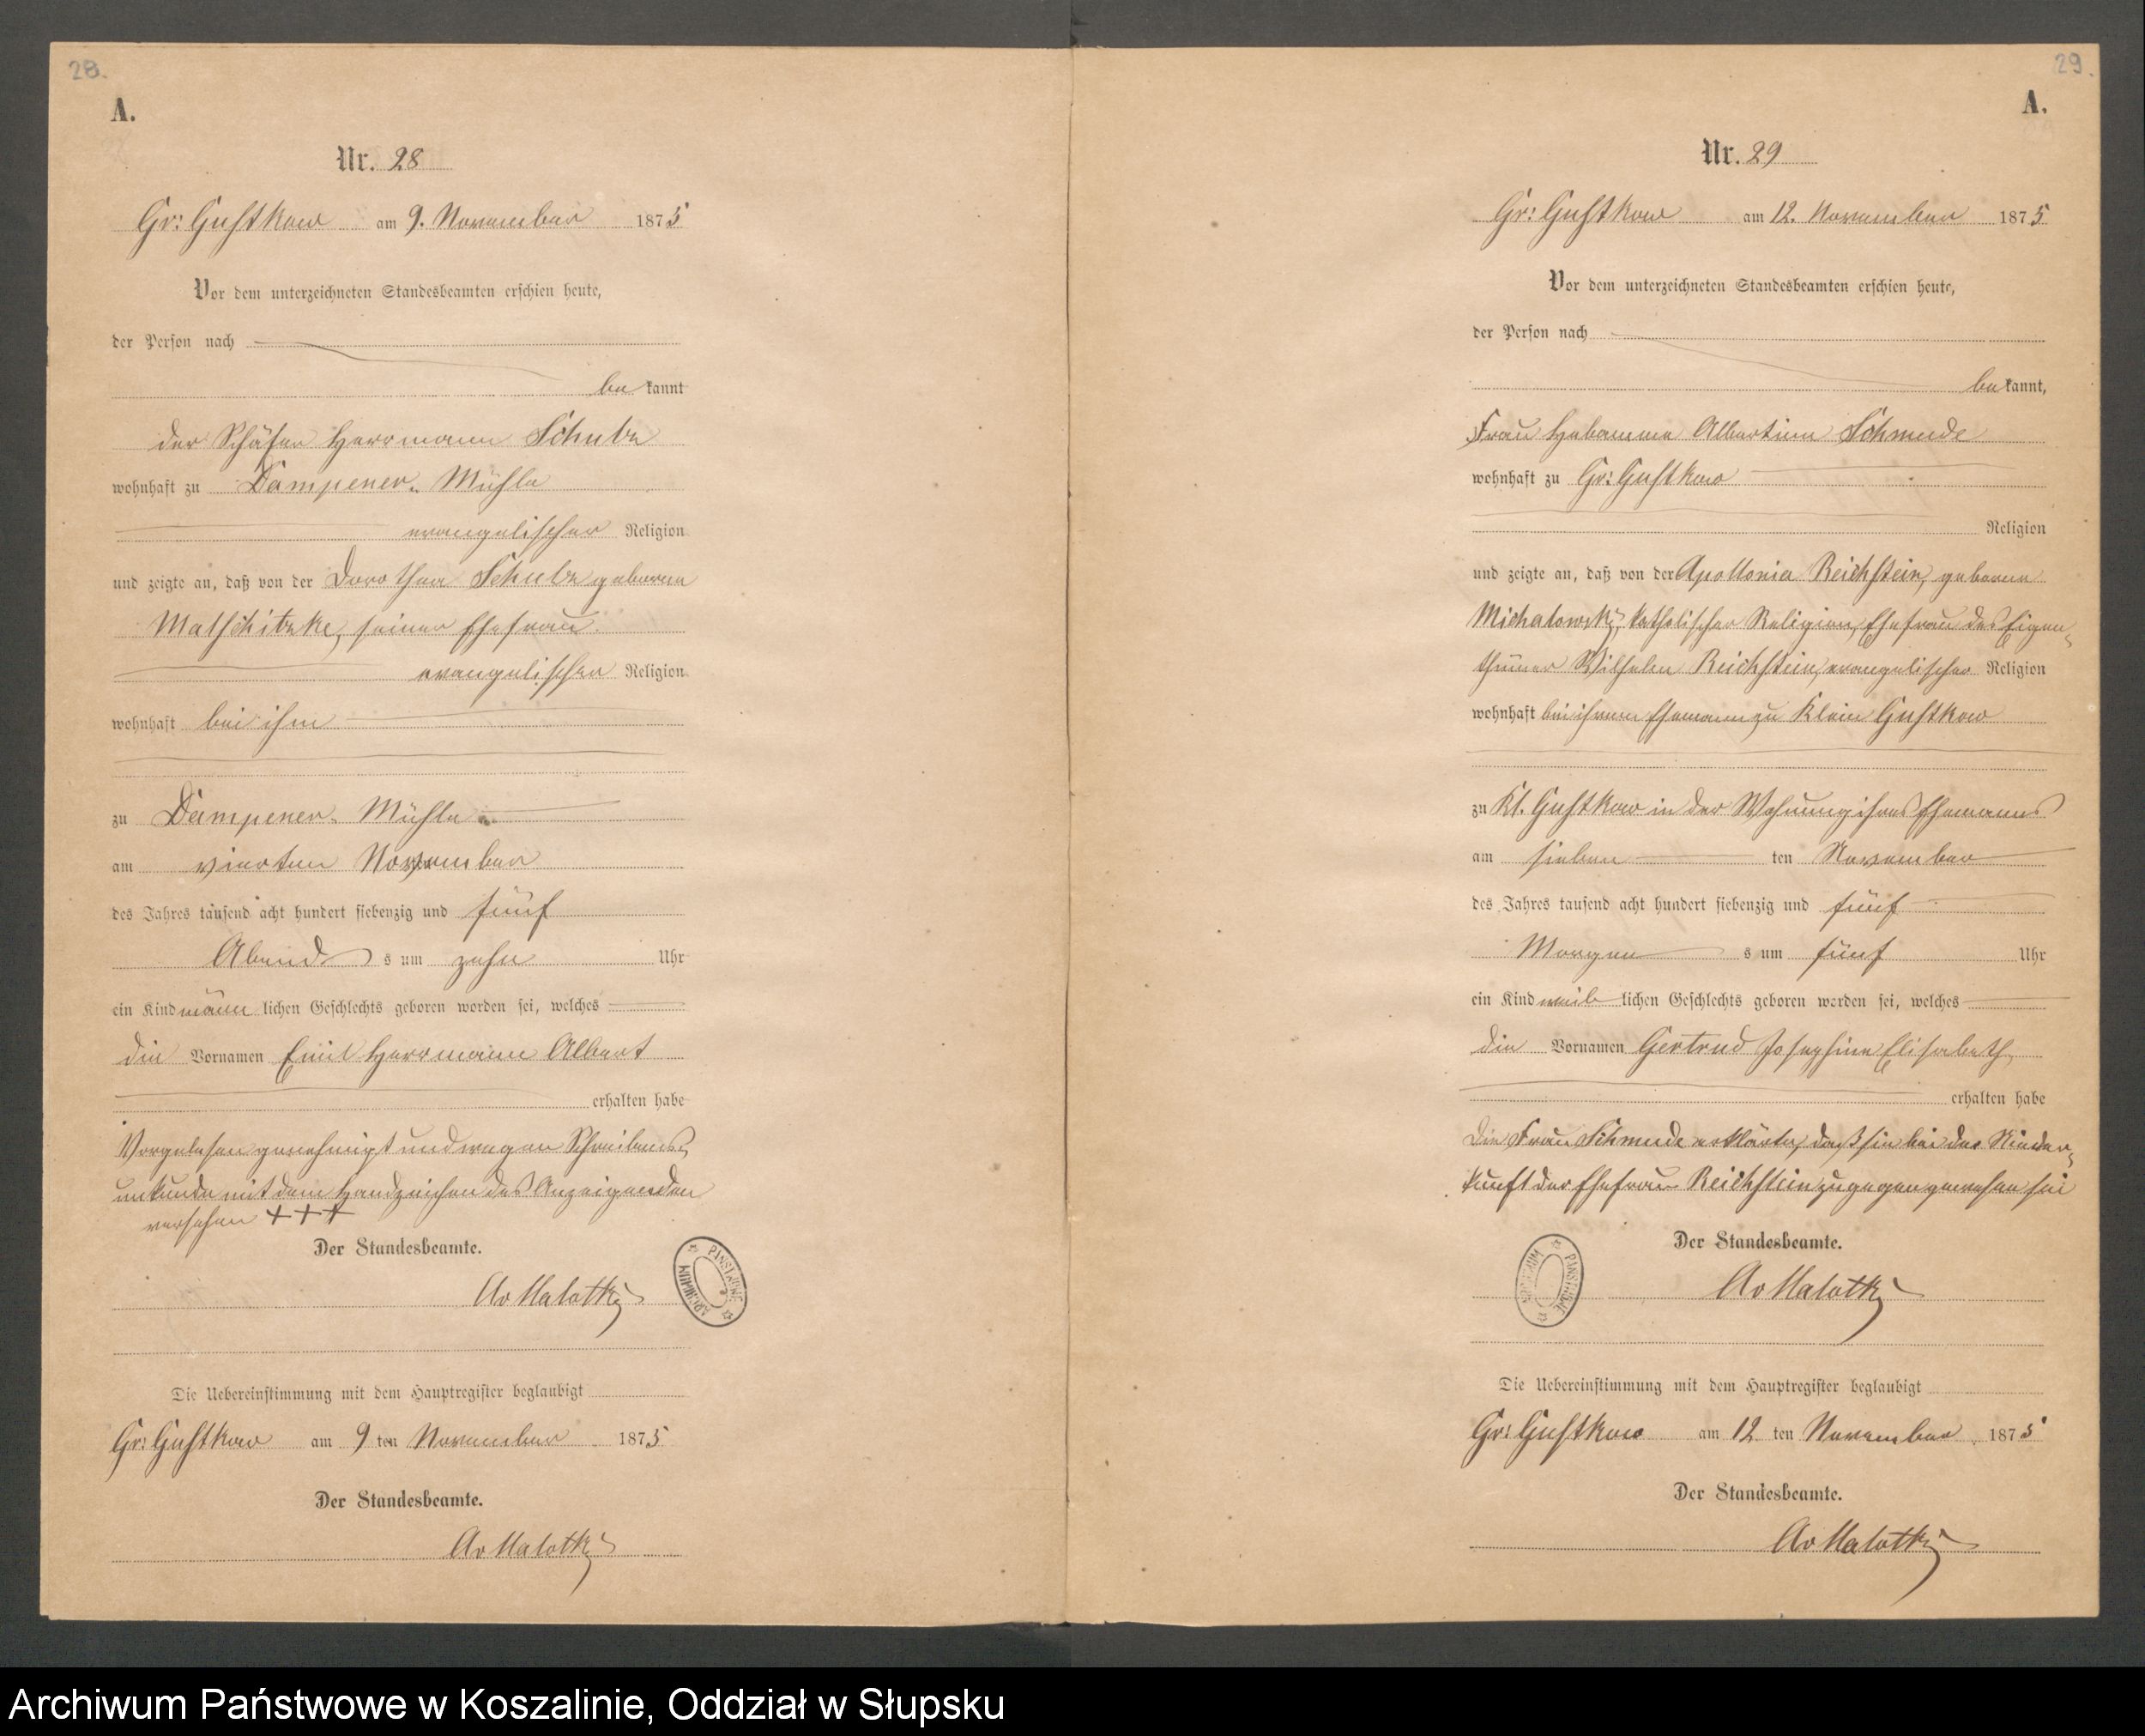 28.
A.
Nr. 28
Gr: Gustkow am 9. November 1875
Vor dem unterzeichneten Standesbeamten erschien heute,
der Person nach
bekannt
der Schäfer Herrmann Schulz
wohnhaft zu Dampener Mühle
evangelischer Religion
und zeigte an, daß von der Dorothea Schulz geborne
Matschitzke, seiner Ehefrau
evangelischer Religion
wohnhaft bei ihm
zu Dampener Mühle
am vierten November
des Jahres tausend acht hundert siebenzig und fünf
Abends um zehn Uhr
ein Kind männlichen Geschlechts geboren worden sei, welches
die Vornamen Emil Herrmann Albert
erhalten habe
Vorgelesen genehmigt und wegen Schreibens
unkunde mit dem Handzeichen des Anzeigenden
versehen +++
Der Standesbeamte.
Av Malottky
PAŃSTWOWE ARCHIWUM
Die Uebereinstimmung mit dem Hauptregister beglaubigt
Gr: Gustkow am 9 ten November 1875
Der Standesbeamte.
Av Malottky
29.
A.
Nr. 29
Gr: Gustkow am 12. November 1875
Vor dem unterzeichneten Standesbeamten erschien heute,
der Person nach
bekannt,
Frau Hebamme Albertine Schmude
wohnhaft zu Gr: Gustkow
Religion
und zeigte an, daß von der Apollonia Reichstein, geborene
Michalowsky, katholischer Religion, Ehefrau des Eigen-
thümer Wilhelm Reichstein, evangelischer Religion
wohnhaft bei ihrem Ehemann zu Klein Gustkow
zu Kl. Gustkow in der Wohnung ihres Ehemanns
am sieben ten November
des Jahres tausend acht hundert siebenzig und fünf
Morgens um fünf Uhr
ein Kind weiblichen Geschlechts geboren worden sei, welches
die Vornamen Gertrud Josephine Elisabeth
erhalten habe
Die Frau Schmude erklärte, daß sie bei der Nieder-
kunft der Ehefrau Reichstein zugegen gewesen sei
Der Standesbeamte.
Av Malottky
PAŃSTWOWE ARCHIWUM
Die Uebereinstimmung mit dem Hauptregister beglaubigt
Gr: Gustkow am 12 ten November 1875
Der Standesbeamte.
Av Malottky
Archiwum Państwowe w Koszalinie, Oddział w Słupsku